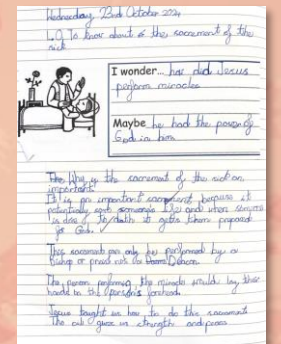 Wednesday 23rd October 2024
L.O To know about the sacrement of the
sick
I wonder... how did Jesus
perform miracles
Maybe he had the power of
God in him
Why is the sacrement of the sick
important?
It is an important sacrament because it
potentially save someone's life and when someone
is close to death it gets them prepared
for God.
This sacrament can only be performed by a
bishop or priest not a Deacon
The person performing the miracle would lay their
hands on the person's forehead.
Jesus taught us how to do the sacrament
The oil gives us strength and peace